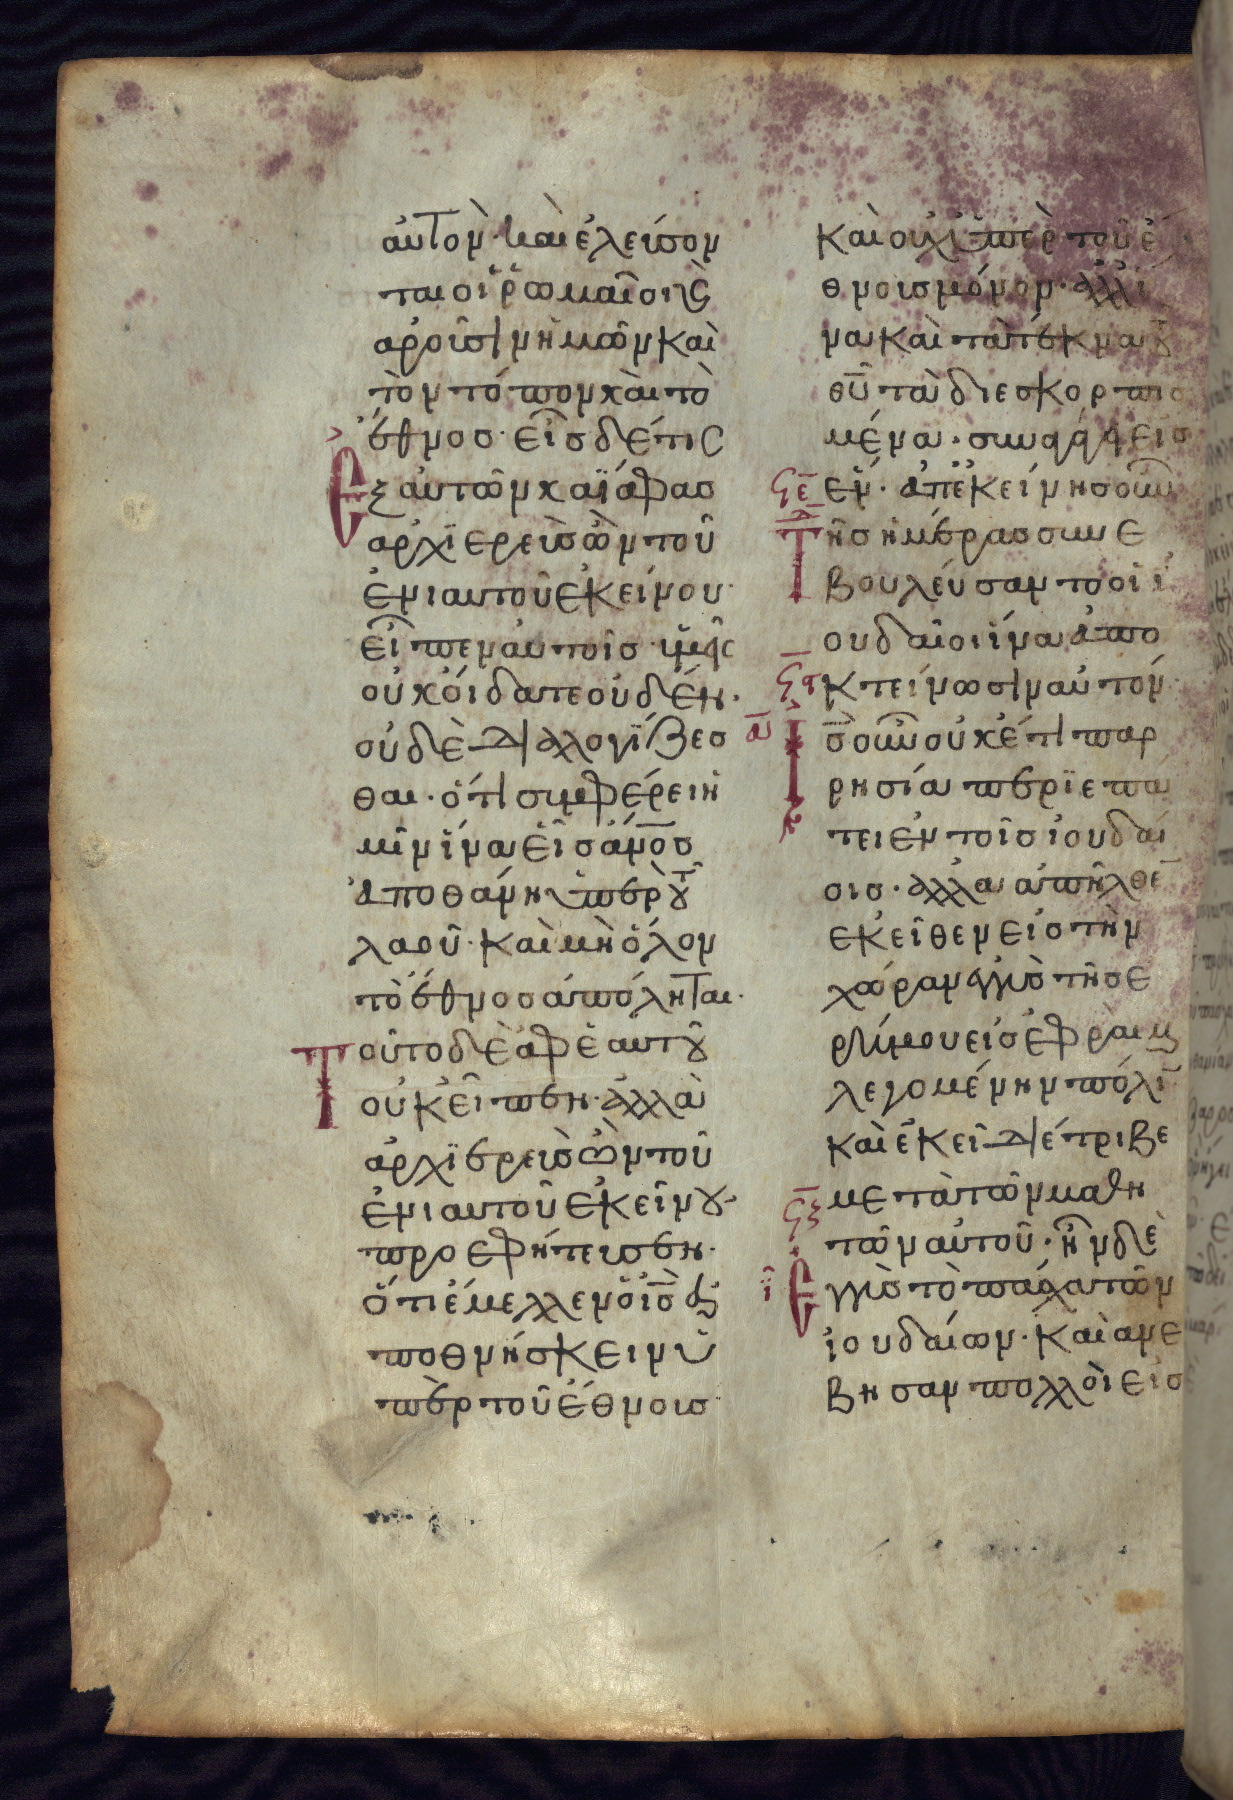 αὐτὸν· καὶ ἐλεύσον
ται οἱ ῥωμαῖοι (καὶ)
ἀροῦσιν ἡμῶν καὶ
τὸν τόπον καὶ τὸ
ἔθνος· εἷς δέ τις
ἐξ αὐτῶν καϊάφας
ἀρχϊερεὺς ὢν τοῦ
ἐνιαυτοῦ ἐκείνου·
εἶπεν αὐτοῖς· ὑμεῖς
οὐκ οἴδατε οὐδέν·
οὐδὲ διαλογίζεσ
θαι· ὅτι συμφέρει ἡ
μῖν ἵνα εἷς ἄν̅ο̅ς̅
ἀποθάνη ὑπὲρ τοῦ
λαοῦ· καὶ μὴ ὅλον
τὸ ἔθνος ἀπόληται·
Τοῦτο δὲ ἀφ' ἑαυτοῦ
οὐκ εἶπεν· ἀλλὰ
ἀρχϊερεὺς ὢν τοῦ
ἐνιαυτοῦ ἐκείνου·
προεφήτευσεν·
ὅτι ἔμελλεν ὁ ι̅ς̅ ἀ
ποθνήσκειν ὑ
πὲρ τοῦ ἔθνους
καὶ οὐχ ὑπὲρ τοῦ ἔ
θνους μόνον· ἀλλ' ἵ
να καὶ τὰ τέκνα τοῦ
θ̅υ̅ τὰ διεσκορπισ
μένα· συναγάγη εἰς
ϟε
ἕν· ἀπ' ἐκείνης οὖν
Τῆς ἡμέρας συνε
βουλεύσαντο οἱ ἰ
ουδαῖοι ἵνα ἀπο
ϟϛ κτείνωσιν αὐτόν·
ι̅ς̅ οὖν οὐκέτι παρ
ρησία περϊεπά
τει ἐν τοῖς ἰουδαί
οις· ἀλλὰ ἀπῆλθε̅
ἐκεῖθεν εἰς τὴν
χώραν ἐγγὺς τῆς ἐ
ρήμου εἰς ἐφραὶμ
λεγομένην πόλι̅
καὶ ἐκεῖ διέτριβε
ϟζ μετὰ τῶν μαθη
τῶν αὐτοῦ· ἦν δὲ
ἐγγὺς τὸ πάσχα τῶν
ἰουδαίων· καὶ ἀνέ
βησαν πολλοὶ εἰς